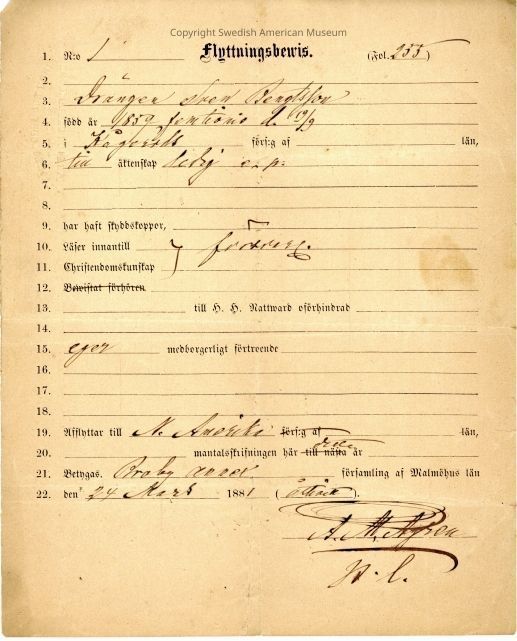 Copyright Swedish American Museum
1. N:o 1 Flyttningsbewis. (Fol. 255)
2.
3. Drängen Sven Bengtsson
4. född år 1859 femtionio d. 19/9
5. i Kågeröds förs:g af län,
6. till äktenskap ledig
7.
8.
9. har haft skyddskoppor,
10. Läser innantill
11. Christendomskunskap
12. Bewistat förhören
13. till H. H. Nattward oförhindrad
14.
15. eger medborgerligt förtroende
16.
17.
18.
19. Afflyttar till N. Amerika förs:g af län,
20. mantalsskrifningen här till nästa år
21. Betygas. Braby annex församling af Malmöhus län
22. den 24 Mars 1881 (åttiett).